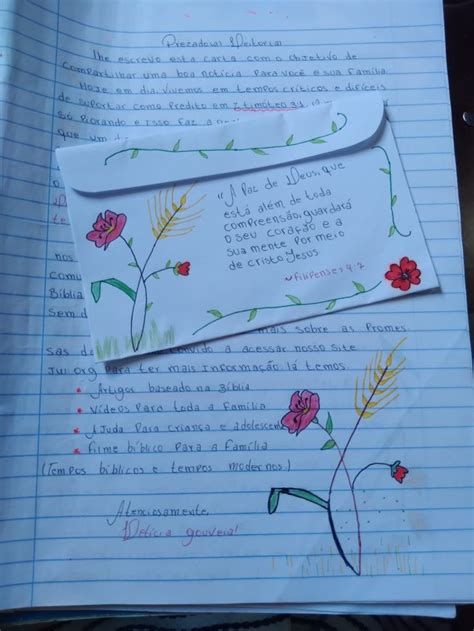 Prezado(a) Leitor(a)
lhe escrevo esta carta com o objetivo de
compartilhar uma boa notícia Para você e sua família
Hoje em dia, Vivemos em tempos críticos e difíceis
de suportar como Predito em 2 timóteo 3:1
só Piorando e isso faz a
que um d
"A Paz de Deus, que
está além de toda
compreensão, guardará
o seu coração e a
sua mente por meio
de cristo Jesus
~Filipenses 4:7
nos
comu
Bíblia
Sem d
mais sobre as Promes
sas d a acessar nosso site
Jw.org Para ter mais Informação, lá temos:
Artigos baseado na Bíblia
Vídeos Para toda a Família
AJuda Para criança e adolescente
Filme bíblico Para a família
(Tempos bíblicos e tempos modernos)
Atenciosamente,
Letícia gouveia!